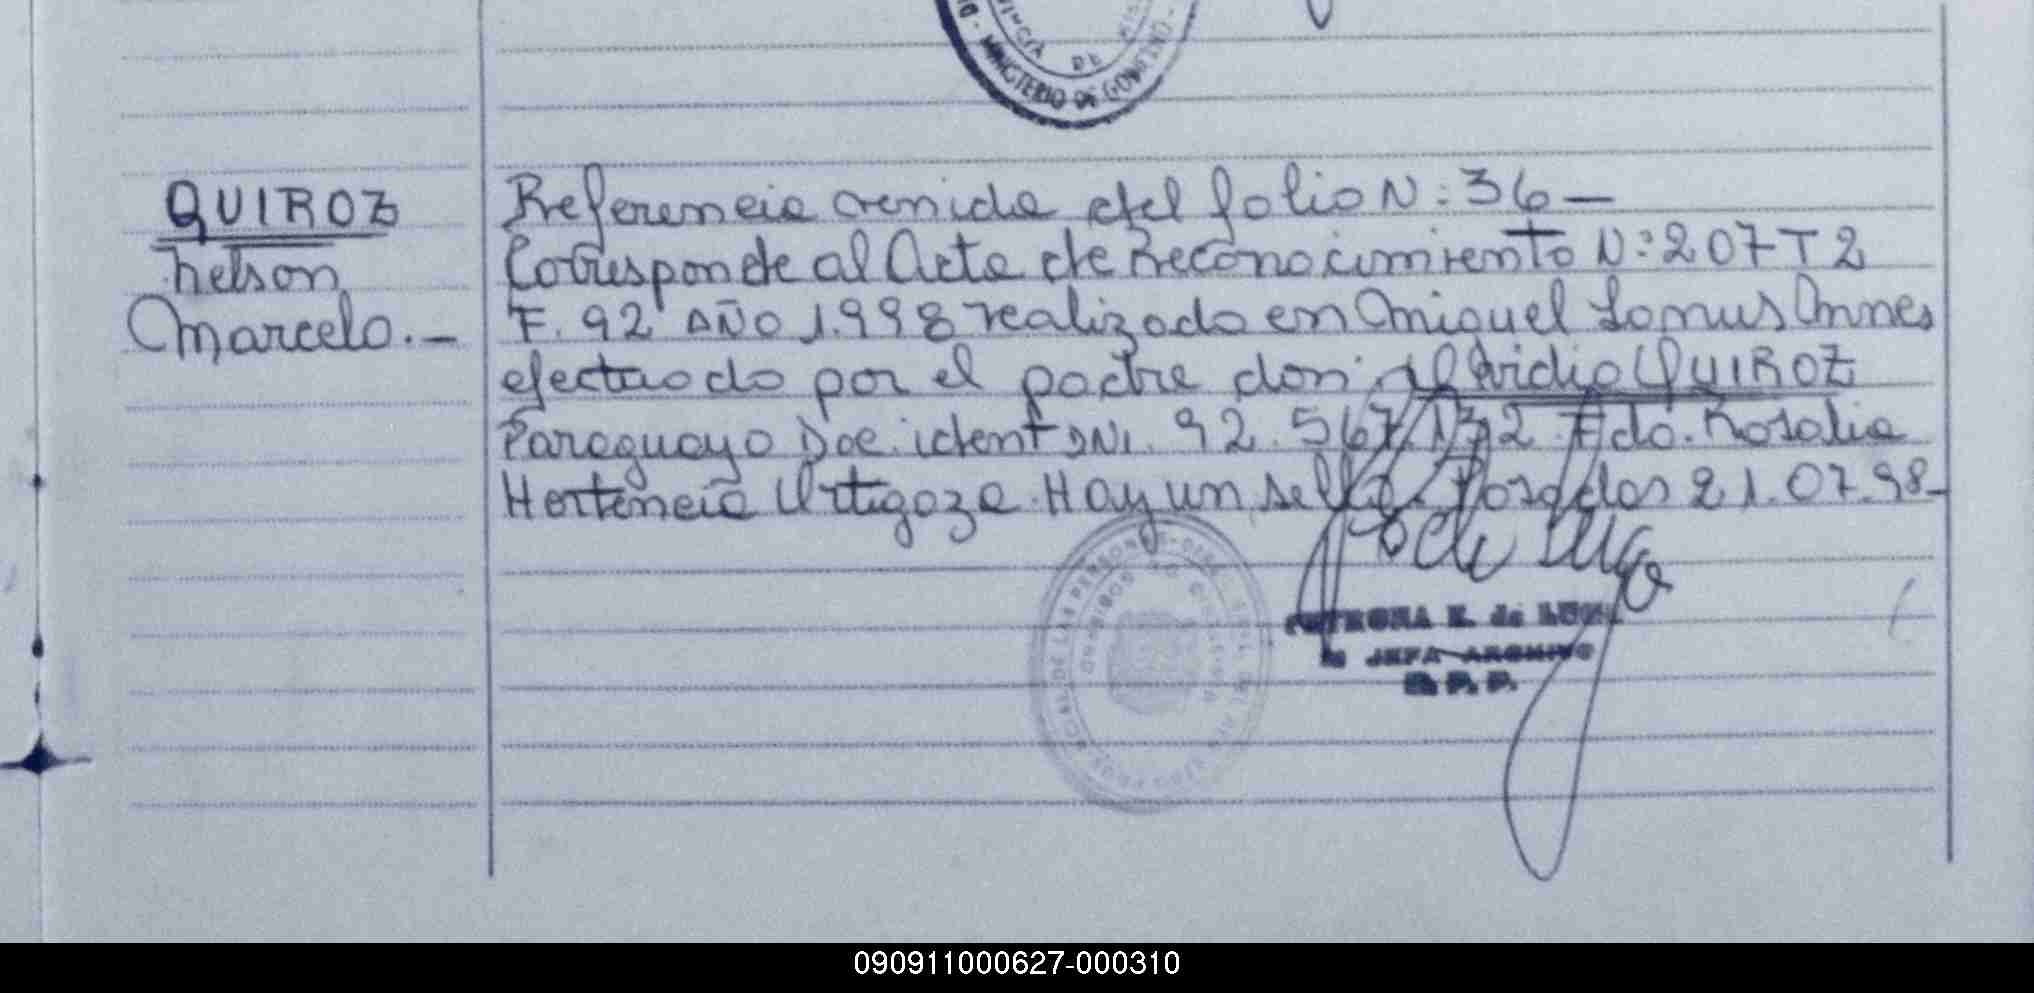 MINISTERIO DE GOBIERNO
QUIROZ
Nelson
Marcelo.-
Referencia venida del folio N: 36 -
Corresponde al Acta de Reconocimiento N: 207 T 2
F. 92 AÑO 1.998 realizado en
efectuado por el padre don QUIROZ
Paraguayo Doc. ident DNI. 92.567.132. Fdo. Rosalia
Hortencia Urtigoza. Hay un sello. Posadas 21.07.98-
PETRONA K. de LUGO
JEFA ARCHIVO
R. P. P.
090911000627-000310